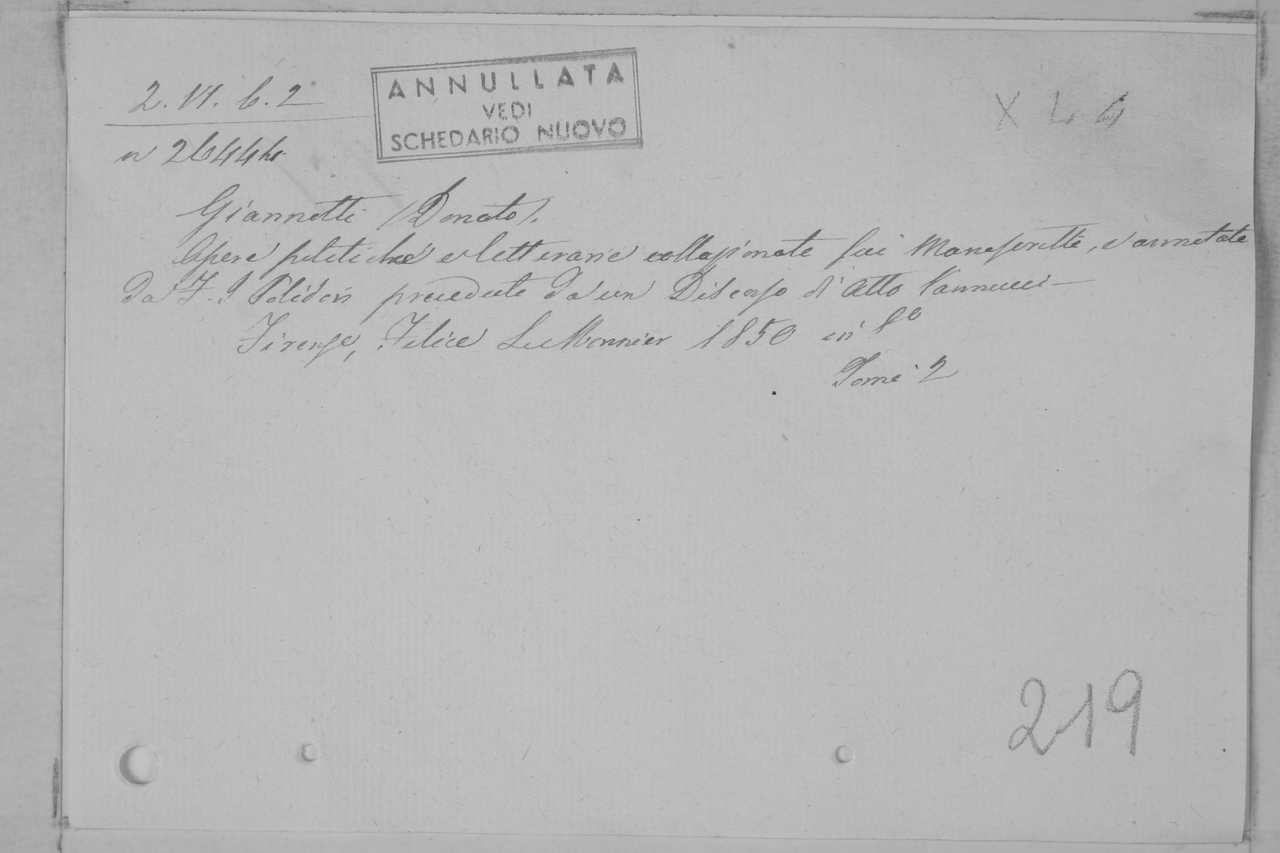 2. VI. 6. 2
ANNULLATA
VEDI
SCHEDARIO NUOVO
X L 4
n 2644
Giannotti (Donato).
Opere politiche e letterarie collazionate sui Manoscritti, e annotate
da F. L Polidori precedute da un Discorso di Atto Vannucci —
Firenze, Felice Le Monnier 1850 in 8º
Tomi 2
219